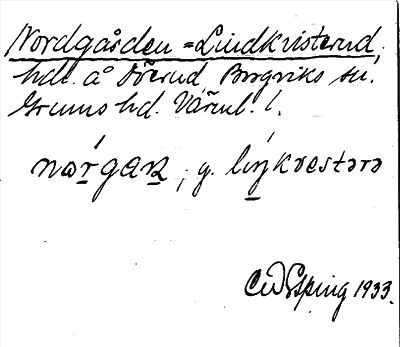 Nordgården = Lindkvisterud,
hdl. å Torerud, Borgviks sn.
Grums hd. Värml. l.
nɷrgaɴ, g. liŋkvestərə
1933.